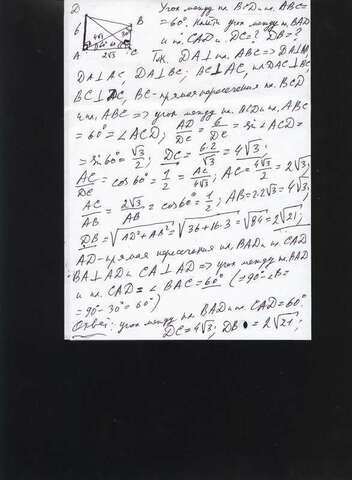 D
B
6
4√3
60°
30°
A
2√3
C
Угол между пл. BCD и пл. ABC =
= 60°. Найти угол между пл. BAD
и пл. CAD и DC = ? DB = ?
Т.к. DA ⊥ пл. ABC => DA ⊥
DA ⊥ AC, DA ⊥ BC; BC ⊥ AC, пл. DAC ⊥ BC
BC ⊥ AC, BC - прямая пересечения пл. BCD
и пл. ABC => угол между пл. BCD и пл. ABC
= 60° = ∠ACD; AD/DC = 6/DC = sin∠ACD =
= sin 60° = √3/2; DC = 6·2/√3 = 4√3;
AC/DC = cos 60° = 1/2 = AC/4√3; AC = 4√3/2 = 2√3;
AC/AB = 2√3/AB = cos 60° = 1/2; AB = 2·2√3 = 4√3;
DB = √AD²+AB² = √36+16·3 = √84 = 2√21;
AD - прямая пересечения пл. BAD и пл. CAD
BA ⊥ AD и CA ⊥ AD => угол между пл. BAD
и пл. CAD = ∠BAC = 60° (= 90° - ∠B =
= 90° - 30° = 60°)
Ответ: угол между пл. BAD и пл. CAD = 60°
DC = 4√3; DB = 2√21;